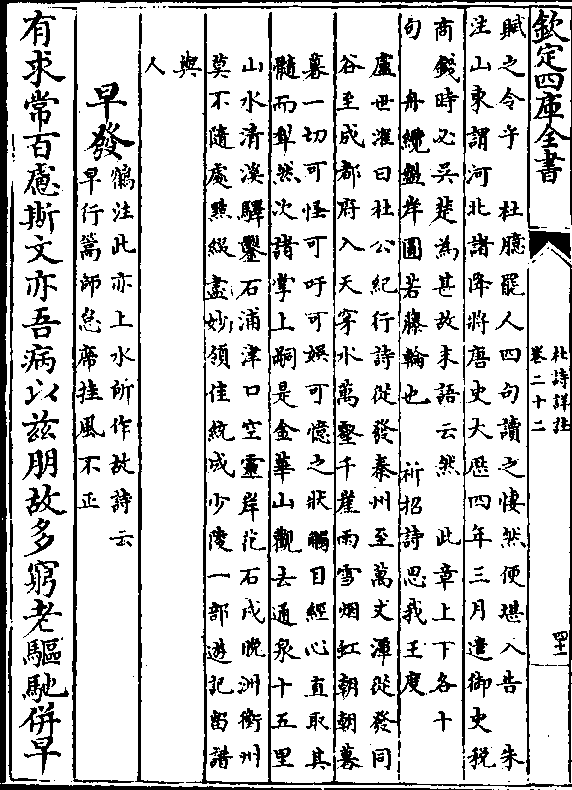 欽定四庫全書
杜詩詳註
卷二十二
賦之令乎　杜臆罷人四句讀之悽然便堪入告　朱
注山東謂河北諸降將唐史大厯四年三月遣御史稅
商錢時必吳楚為甚故末語云然　此章上下各十
句　舟纜盤岸圓若藤輪也　祈招詩思我王度
盧世㴶曰杜公紀行詩從發秦州至萬丈潭從發同
谷至成都府入天穿水萬壑千崖雨雪烟虹朝朝暮
暮一切可怪可吁可娛可憶之狀觸目經心直取其
髓而犁然次諸掌上嗣是金華山觀去通泉十五里
山水清溪驛鑿石浦津口空靈岸花石戍晚洲衡州
莫不隨處點綴盡妙領佳統成少陵一部遊記留譜
與
人
早發
鶴注此亦上水所作故詩云
早行篙師怠席挂風不正
有求常百慮斯文亦吾病以兹朋故多窮老驅馳併早